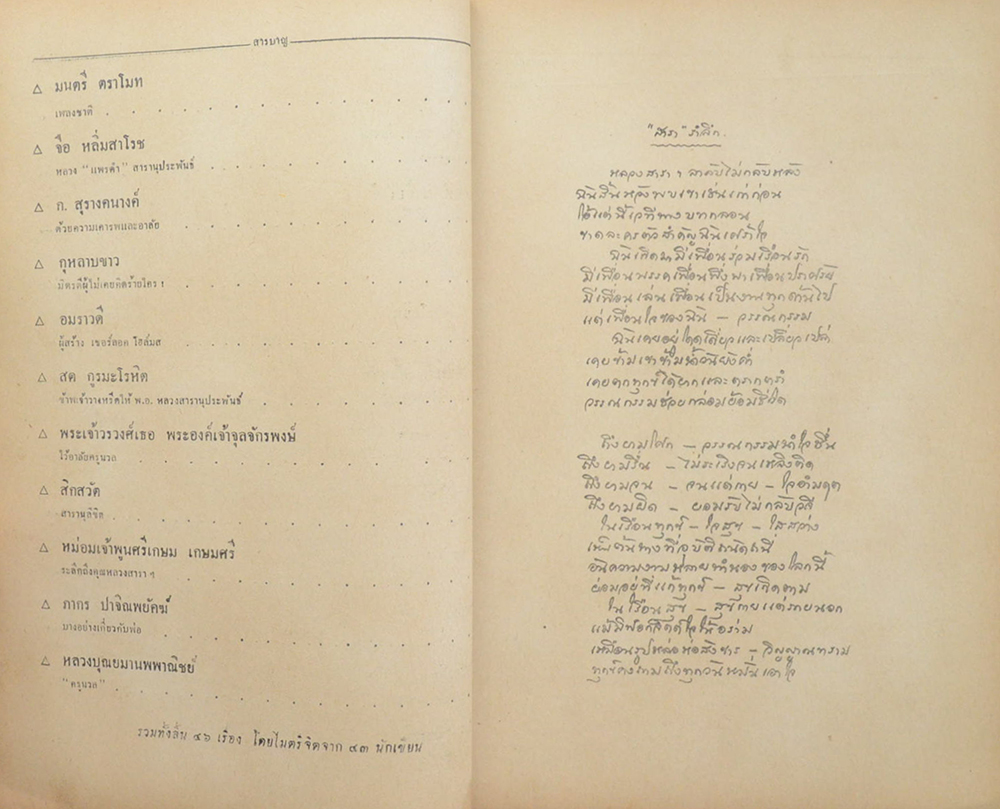 สารบาญ
△ มนตรี ตราโมท
เพลงชาติ
△ ชือ หลิ่มสาโรช
หลวง "แพรดำ" สารานุประพันธ์
△ ก. สุรางคนางค์
ด้วยความเคารพและอาลัย
△ กุหลาบขาว
มิตรดีผู้ไม่เคยคิดร้ายใคร !
△ อมราวดี
ผู้สร้าง เชอร์ลอค โฮล์มส
△ สด กูรมะโรหิต
ข้าพเจ้าวางหรีดให้ พ.อ. หลวงสารานุประพันธ์
△ พระเจ้าวรวงศ์เธอ พระองค์เจ้าจุลจักรพงษ์
ไว้อาลัยครูนวล
△ สิกสวัต
สารานุลิขิต
△ หม่อมเจ้าพูนศรีเกษม เกษมศรี
ระลึกถึงคุณหลวงสารา ฯ
△ ภากร ปาจิณพยัคฆ์
บางอย่างเกี่ยวกับพ่อ
△ หลวงบุณยมานพพาณิชย์
"ครูนวล"
รวมทั้งสิ้น ๔๖ เรื่อง โดยไมตรีจิตจาก ๔๓ นักเขียน
"สารา" รำลึก
หลวงสารา ฯ ลาลับไม่กลับหลัง
ฉันสิ้นหวังพบเขาเช่นเก่าก่อน
ขาดละครตัวสำคัญฉันเศร้าใจ
ฉันเกิดมามีเพื่อนร่วมเรือนรัก
มีเพื่อนเล่นเพื่อนเป็นงานทุกด้านไป
แต่เพื่อนใจของฉัน – วรรณกรรม
ฉันเคยอยู่โดดเดี่ยวและเปลี่ยวเปล่า
เคยตกทุกข์ได้ยากและตรากตรำ
วรรณกรรมช่วยกล่อมย้อมชีวิต
ถึงยามโศก – วรรณกรรมนำใจชื่น
ถึงยามรื่น – ไม่ระเริงจนเหลิงติด
ถึงยามจน – จนแต่กาย – ใจ
ถึงยามผิด – ยอมรับไม่กลับ
ในเรือนทุกข์ – ใจสุข – ใสสว่าง
อันความงามหลายทำนองของโลกนี้
ย่อมอยู่ที่แก้ทุกข์ – สุขเกิดตาม
ในเรือนสุข – สุขกายแต่ภายนอก
เหมือนรูปหล่อห่อสังขาร – วิญญาณทราม